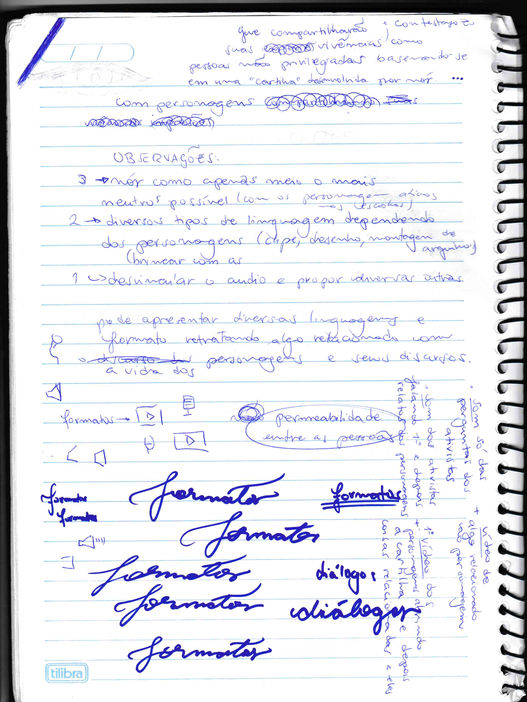 que compartilharão + contestação
suas vivências como
pessoas não privilegiadas baseando-se
em uma "cartilha" desenvolvida por nós. ...
com personagens
OBSERVAÇÕES:
3 → nós como apenas meio o mais
neutros possível (com os personagens ativos
nas escolhas)
2 → diversos tipos de linguagem dependendo
dos personagens (clipe, desenho, montagem de
arquivos)
(brincar com as
1 → desvincular o audio e propor diversas outras
pode apresentar diversas linguagens e
formato retratando algo relacionado com
o personagens e seus discursos.
a vida dos
formatos →
permeabilidade
entre as pessoas
formatos
formatos
formatos
formatos
formatos
formatos
diálogos
formatos
diálogos
formatos
tilibra
• som só das
perguntas dos
ativistas
+ vídeo de
algo relacionado
ao personagem
• som dos ativistas
falando 1º e depois
relatos dos personagens
+ 1º vídeo dos
personagens abrindo
a cartilha e depois
coisas relacionadas a eles